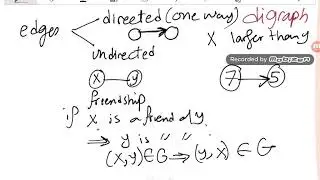 edges
directed (one way) digraph
X larger than y
undirected
x y
7 5
friendship
if X is a friend of y.
⇒ y is " " .
(X,y)∈G ⇒ (y,X) ∈ G
RECORDED BY